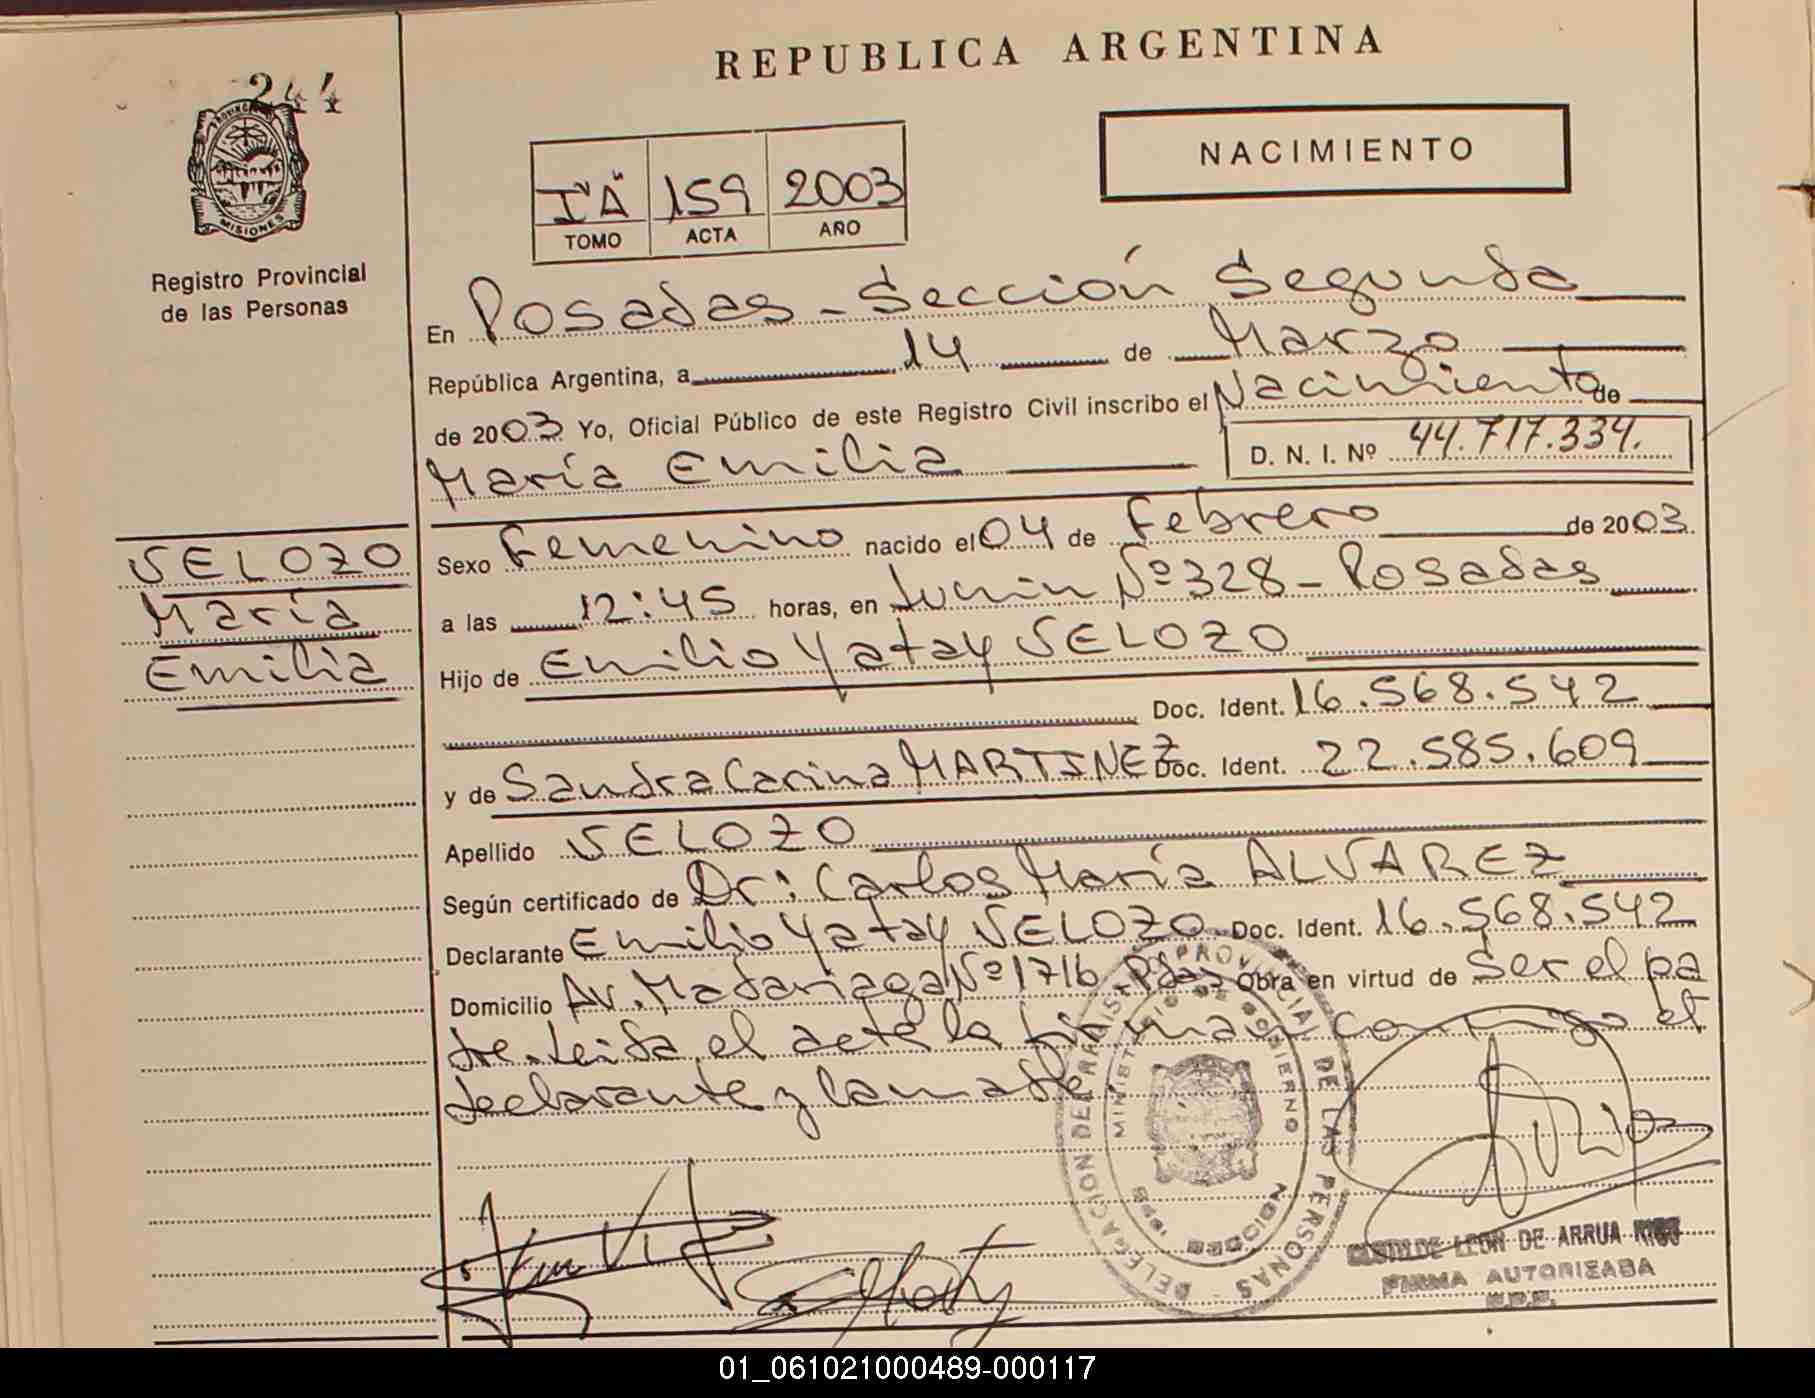 REPUBLICA ARGENTINA
244
NACIMIENTO
PROVINCIA
MISIONES
I "A" 159 2003
TOMO ACTA AÑO
Registro Provincial
de las Personas
En Posadas - Sección Segunda
República Argentina, a 14 de Marzo
de 2003 Yo, Oficial Público de este Registro Civil inscribo el Nacimiento de
María Emilia
D. N. I. Nº 44.717.334.
VELOZO
María
Emilia
Sexo Femenino nacido el 04 de Febrero de 2003
a las 12:45 horas, en Junin Nº 328 - Posadas
Hijo de Emilio Yatay VELOZO
Doc. Ident. 16.568.542
y de Sandra Carina MARTINEZ Doc. Ident. 22.585.609
Apellido VELOZO
Según certificado de Dr: Carlos María ALVAREZ
Declarante Emilio Yatay VELOZO Doc. Ident. 16.568.542
Domicilio Av. Madariaga Nº 1716 - Pdas Obra en virtud de ser el pa
dre. Leída el acta la firman conmigo el
declarante y la madre
PROVINCIAL DE LAS PERSONAS
DELEGACION
MINISTERIO DE GOBIERNO
MISIONES
LEON DE ARRUA
FIRMA AUTORIZADA
01_061021000489-000117